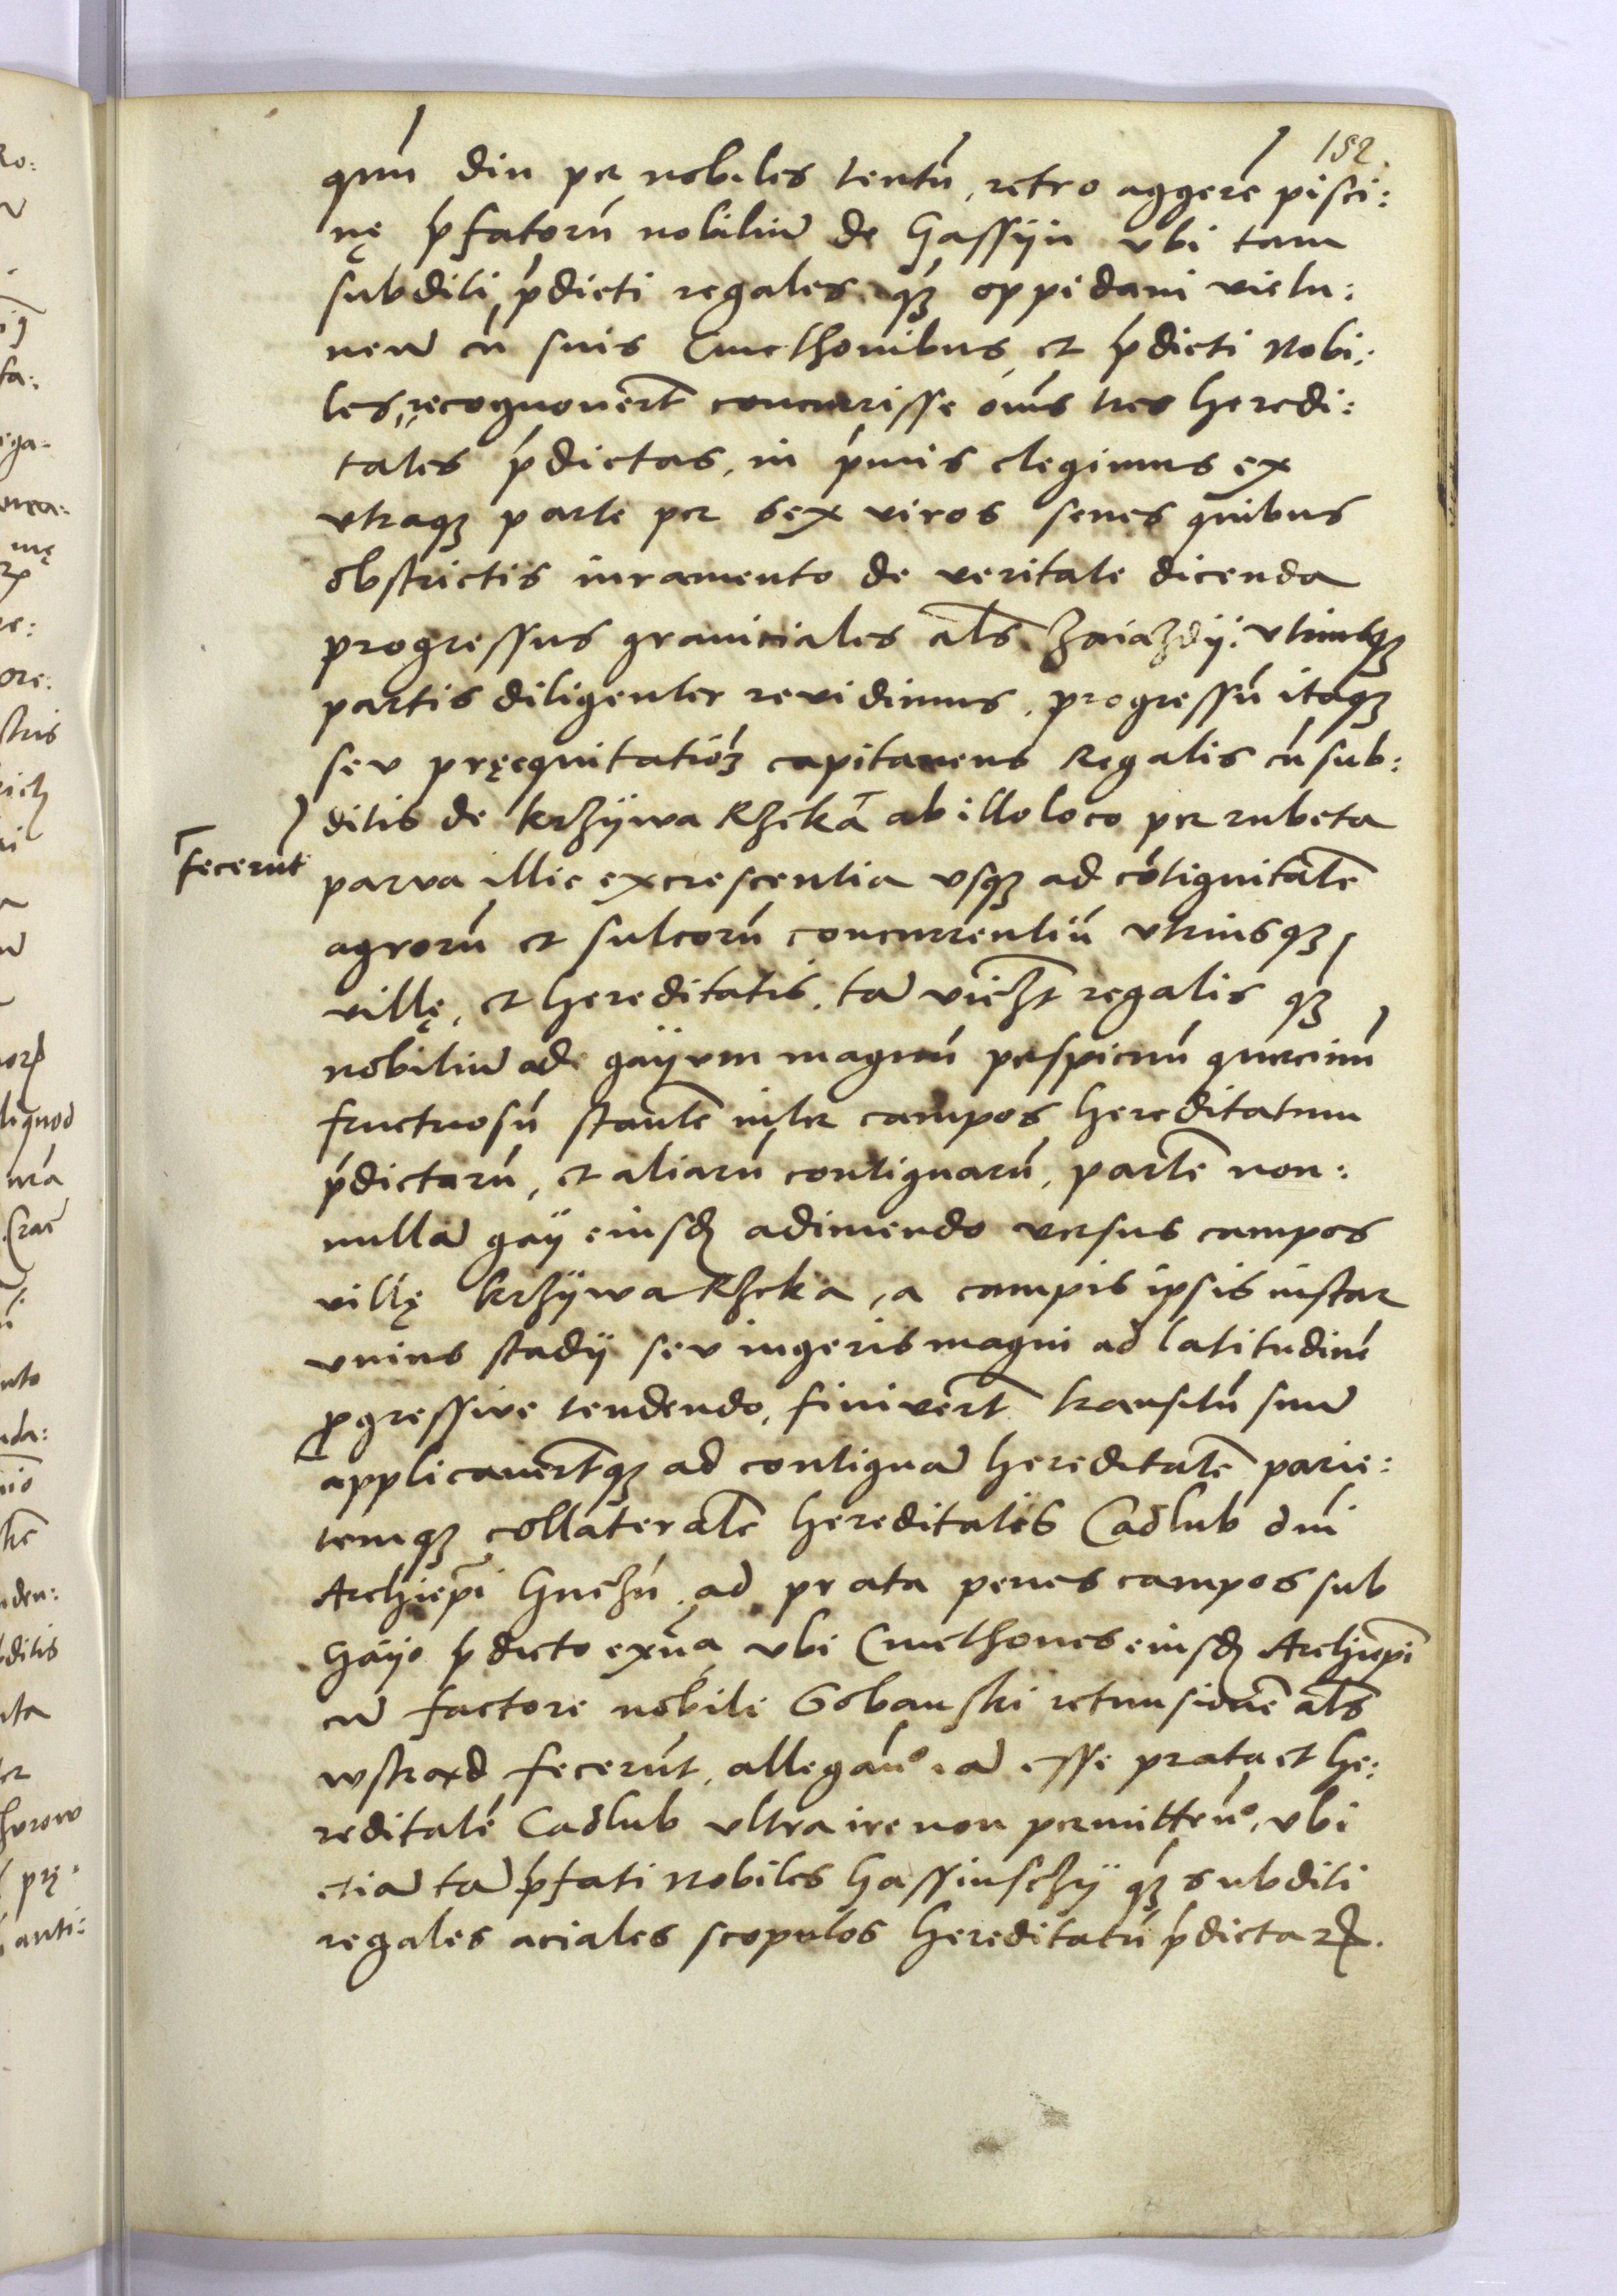 152.
qnu̇ diu per nobiles tentū, retro aggerē pisci:
nę p̄fatorū nobiliū de Gassyn vbi tam
subditi p̄dicti regales, q̄ꝫ oppidani vielu:
neñ cū suis Cmethonibus et p̄dicti Nobi:
les, recognouerūt concurrisse om̄s tres heredi:
tates p̄dictas, in p̄mis elegimus ex
vtraqꝫ parte per sex viros senes quibus
obstrictis iuramento de veritate dicenda
progressus graniciales al̄s Zaiazdÿ vtriusqꝫ
partis diligenter reuidimus. progressū itaqꝫ
sev pręequitatiōꝫ capitaneus Regalis cū sub:
ditis de krzÿwa Rzekā ab illo loco per rubeta
fecerūt
parva illic excrescentia vsqꝫ ad cōtiguitatē
agrorū et sulcorū concurrentiū vtriusqꝫ
villę, et hereditatis. tā vidzt regalis q̄ꝫ
nobiliū ad gaÿvm magnū perspicuū quercinū
fructuosū stantē inter campos hereditatum
p̄dictarū, et aliarū contiguarū, partē non:
nullā gaÿ eiusd. adimendo versus campos
villę krzÿwa Rzeka, a campis ipsis instar
vnius stadÿ sev iugeris magni ad latitudinē
ꝓgressive tendendo, finiverūt transitū suū
applicaverūtqꝫ ad contiguā hereditatē parie:
temqꝫ collateralē hereditatis Cadlub dn̄i
Archiep̄i Gnezn̄. ad prata penes campos sub
Gaÿo p̄dicto exn̄a vbi Cmethones eiusd. Archiep̄i
cū factore nobile Gobanski retunsionē al̄s
wstrąd fecerūt, allegan̄º iā esse prata et he:
reditatē Cadlub vltra ire non permitten̄º, vbi
etiā tā p̄fati Nobiles Gassinsczÿ q̄ꝫ subditi
regales aciales scopulos hereditatū p̄dictaꝝ.